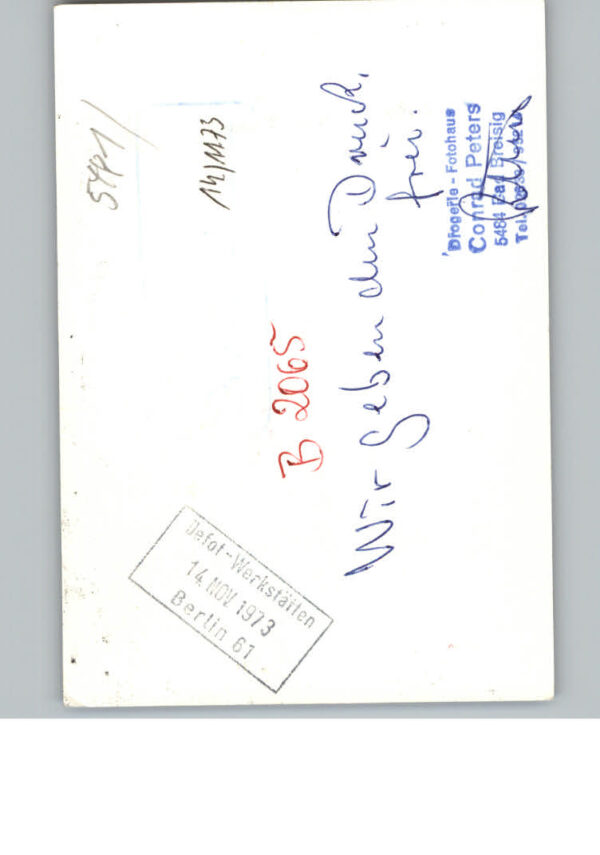 5491/
14/11/73
B 2065
Wir geben den Druck,
frei.
Drogerie - Fotohaus
Conrad Peters
5484 Bad Breisig
Defot-Werkstätten
14. NOV 1973
Berlin 61